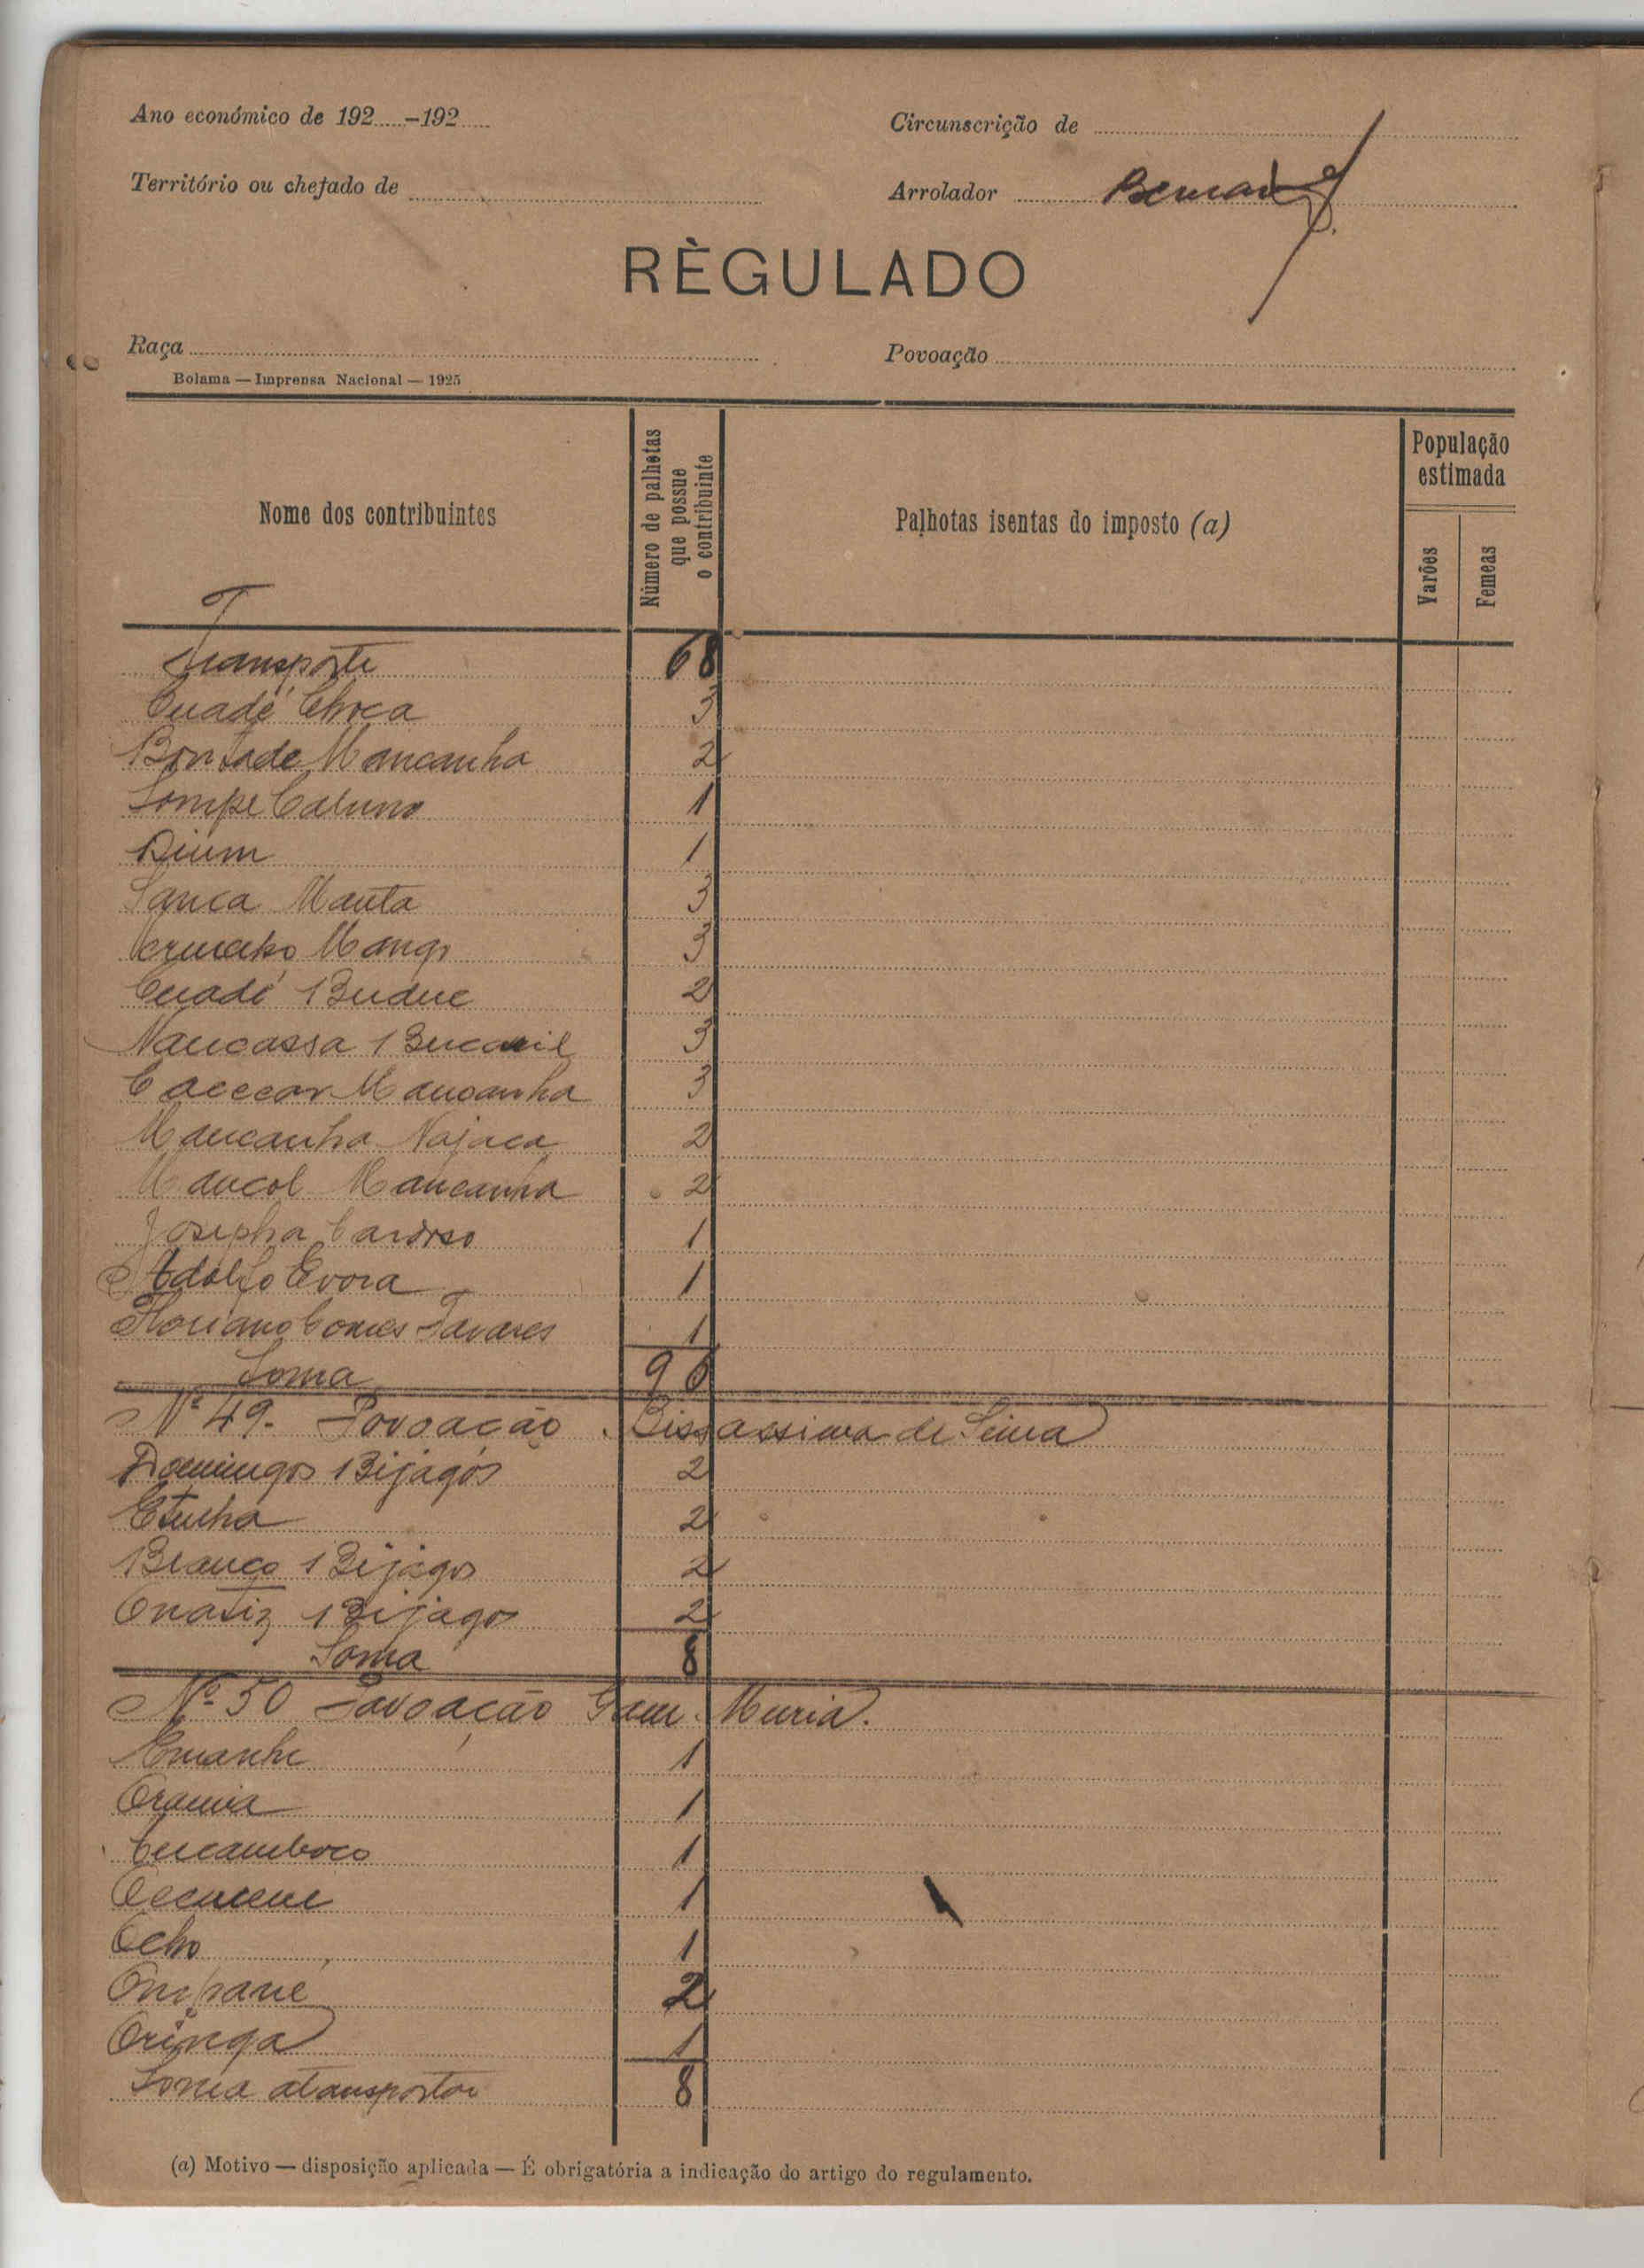 Ano económico de 192.....-192.....
Circunscrição de
Território ou chefado de
Arrolador
RÈGULADO
Raça
Povoação
Bolama — Imprensa Nacional — 1925
Nome dos contribuintes
Número de palhotas que possue o contribuinte
Palhotas isentas do imposto (a)
População estimada
Varões
Femeas
Transporte 68
Cuadé Choca 3
Bontade Mancanha 2
Sompe Calumo 1
Dium 1
Sanca Manta 3
Mango 3
Cuadé Buduc 2
Nancassa 3
Mancanha 3
Mancanha Najaca 2
Mancol Mancanha 2
Josepha Cardoso 1
Adolfo Evora 1
Floriano Gomes Tavares 1
Soma 96
Nº 49. Povoação Bissassima de Sima
Domingos Bijagós 2
Etunha 2
Branco Bijagos 2
Onatiz Bijagos 2
Soma 8
Nº 50 Povoação Gam. Muria.
Emanhe 1
Oramia 1
Cucamboco 1
1
Ocho 1
Ompané 2
Oringa 1
Soma a transportar 8
(a) Motivo — disposição aplicada — É obrigatória a indicação do artigo do regulamento.